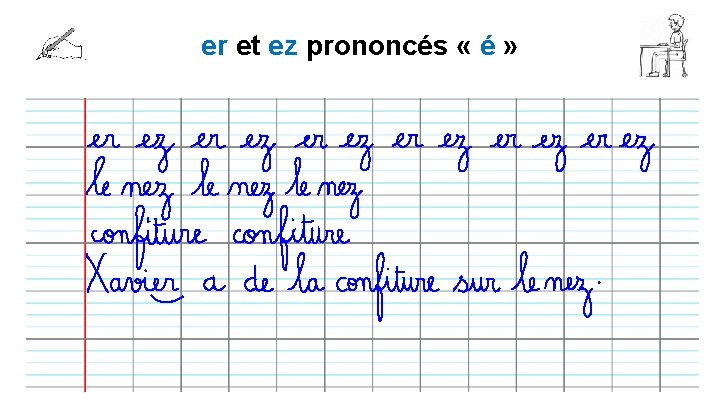 er et ez prononcés « é »
er ez er ez er ez er ez er ez er ez
le nez le nez le nez
confiture confiture
Xavier a de la confiture sur le nez.